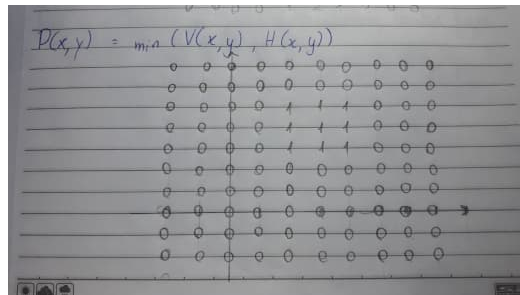 P(x,y) = min (V(x,y), H(x,y))
0 0 0 0 0 0 0 0 0 0
0 0 0 0 0 0 0 0 0 0
0 0 0 0 1 1 1 0 0 0
0 0 0 0 1 1 1 0 0 0
0 0 0 0 1 1 1 0 0 0
0 0 0 0 0 0 0 0 0 0
0 0 0 0 0 0 0 0 0 0
0 0 0 0 0 0 0 0 0 0
0 0 0 0 0 0 0 0 0 0
0 0 0 0 0 0 0 0 0 0